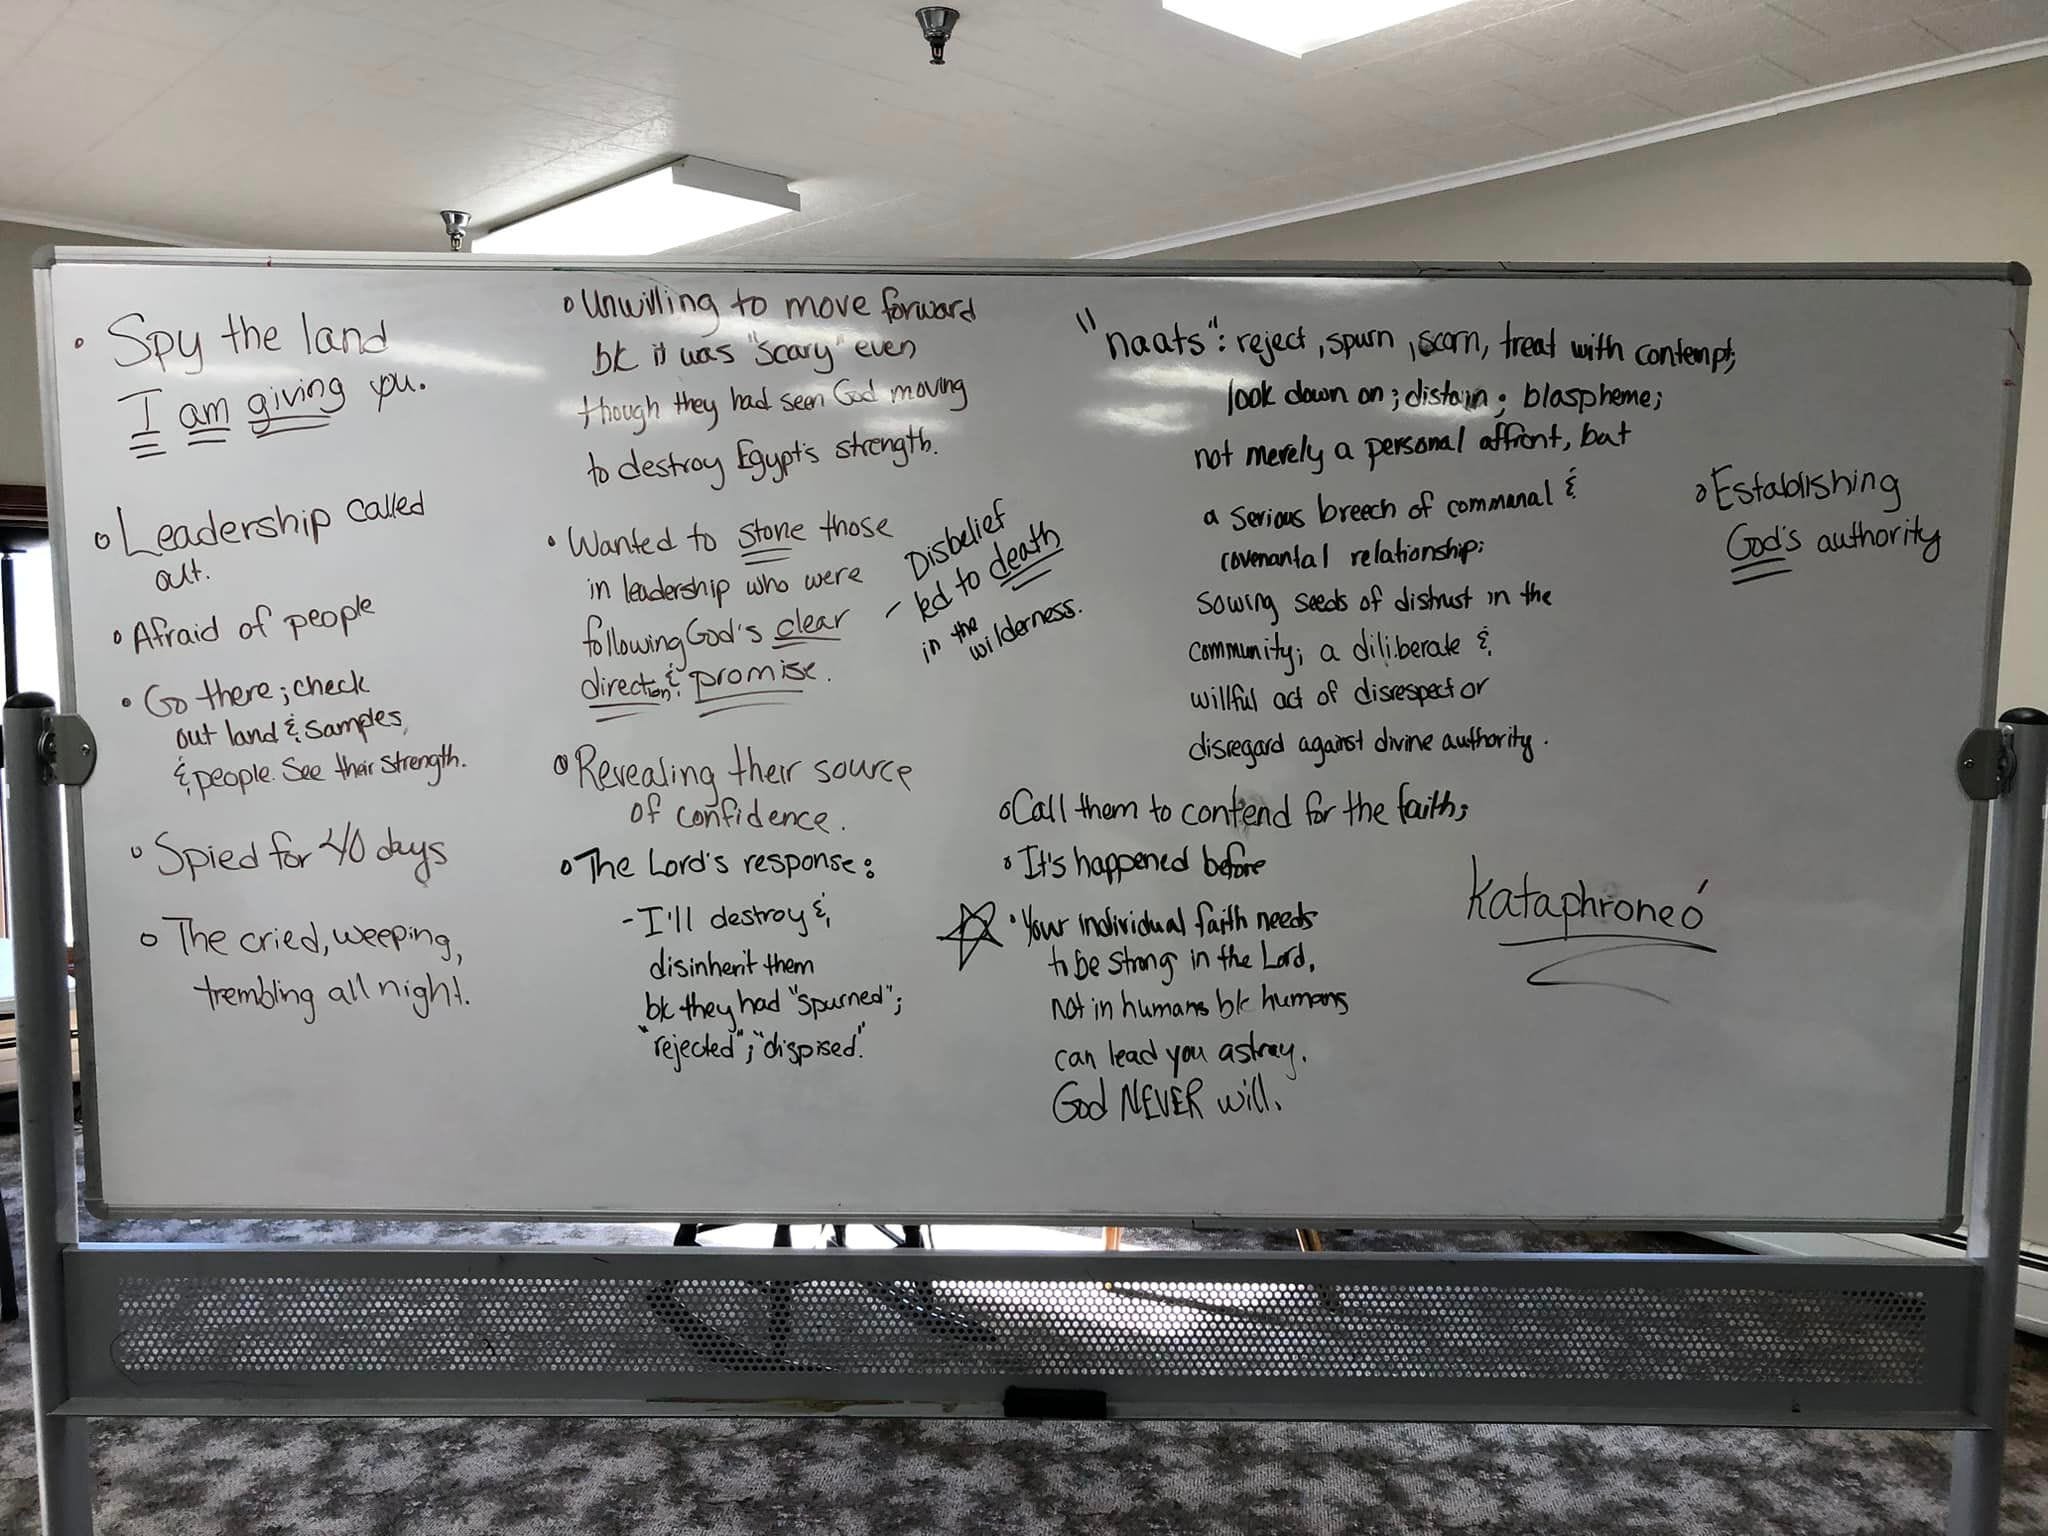 • Spy the land
I am giving you.
• Leadership called
out.
• Afraid of people
• Go there; check
out land & samples,
& people. See their strength.
• Spied for 40 days
• The cried, weeping,
trembling all night.
• Unwilling to move forward
bk it was "scary" even
though they had seen God moving
to destroy Egypt's strength.
• Wanted to stone those
in leadership who were
following God's clear
direction & promise.
- Disbelief
led to death
in the
wilderness.
• Revealing their source
of confidence.
• The Lord's response:
- I'll destroy &
disinherit them
bk they had "spurned";
"rejected"; "dispised."
"naats": reject, spurn, scorn, treat with contempt;
look down on; distain; blaspheme;
not merely a personal affront, but
a serious breech of communal &
covenantal relationship;
sowing seeds of distrust in the
community; a diliberate &
willful act of disrespect or
disregard against divine authority.
• Call them to contend for the faith;
• It's happened before
☆ • Your individual faith needs
to be strong in the Lord,
not in humans bk humans
can lead you astray.
God NEVER will.
• Establishing
God's authority
kataphroneó